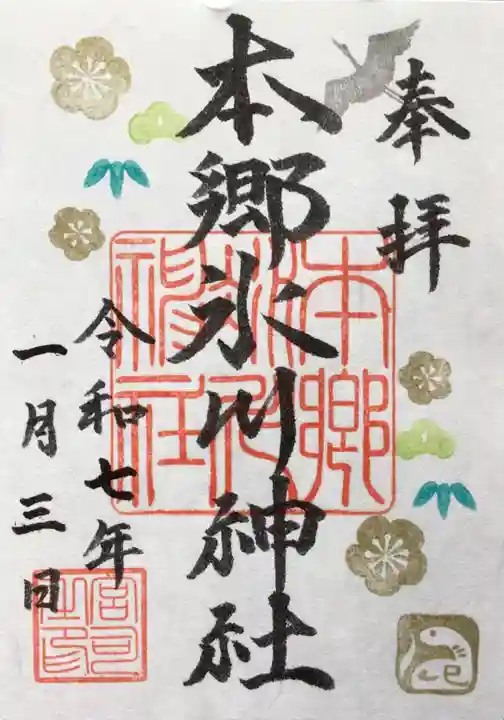 奉拝
本郷氷川神社
令和七年
一月三日
本郷氷川神社
宮司之印
巳